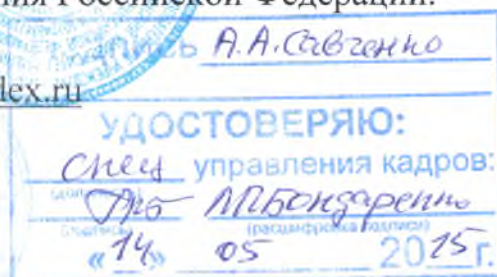 ия Российской Федерации.
пись А.А.Савченко
dex.ru
УДОСТОВЕРЯЮ:
спец управления кадров:
Л.П.Бондаренко
(расшифровка подписи)
«14» 05 2015 г.